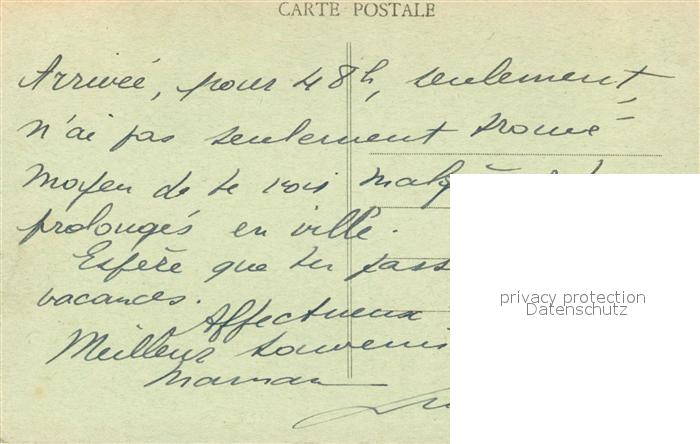 CARTE POSTALE
Arrivée, pour 48h, seulement
n'ai pas seulement trouvé
moyen de te voir
prolongés en ville.
Espère que tu pass
vacances.
Affectueux
Meilleur souvenir
maman
privacy protection
Datenschutz